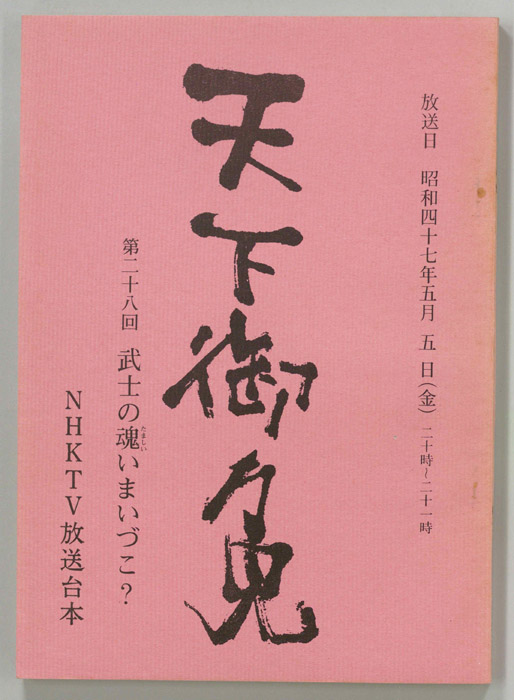 放送日 昭和四十七年五月 五 日(金) 二十時~二十一時
天下御免
第二十八回 武士の魂いまいづこ?
たましい
NHKTV放送台本